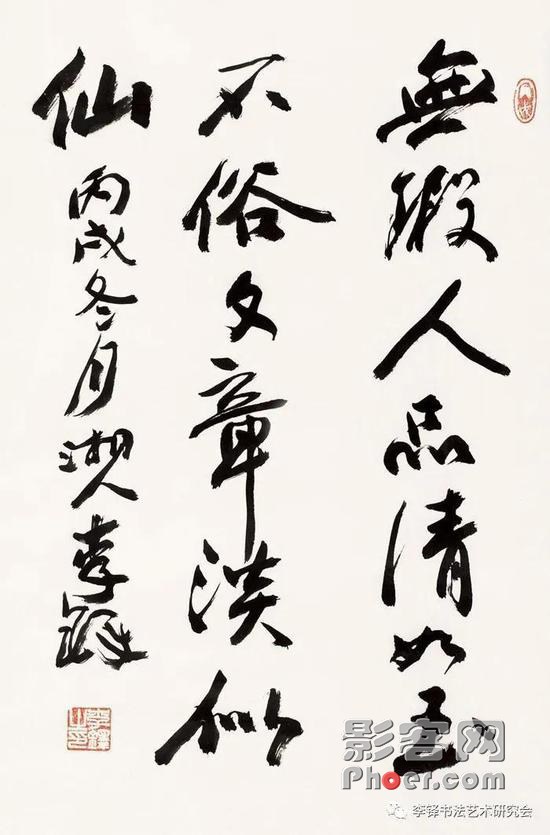 無瑕人品清如玉
不俗文章淡似
仙 丙戌冬月湘人李鐸
李鐸之印
影客网
Phoer.com
李铎书法艺术研究会